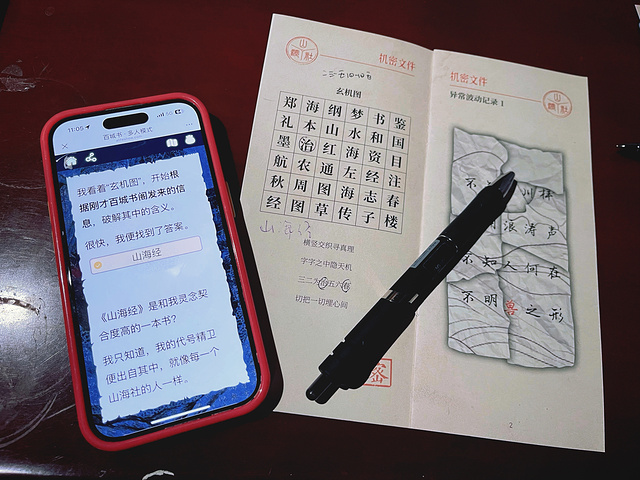 11:05
5G
百城书·多人模式
我看着“玄机图”，开始根
据刚才百城书阁发来的信
息，破解其中的含义。
很快，我便找到了答案。
山海经
《山海经》是和我灵念契
合度高的一本书？
我只知道，我的代号精卫
便出自其中，就像每一个
山海社的人一样。
机密文件
玄机图
郑海纲梦书鉴
礼本山水和国
墨治红海资目
航农通左经注
秋周图海志春
经图草传子楼
山海经
横竖交织寻真理
字字之中隐天机
切把一切埋心间
机密文件
异常波动记录 1
浪涛声
不知人何在
不明兽之形
2